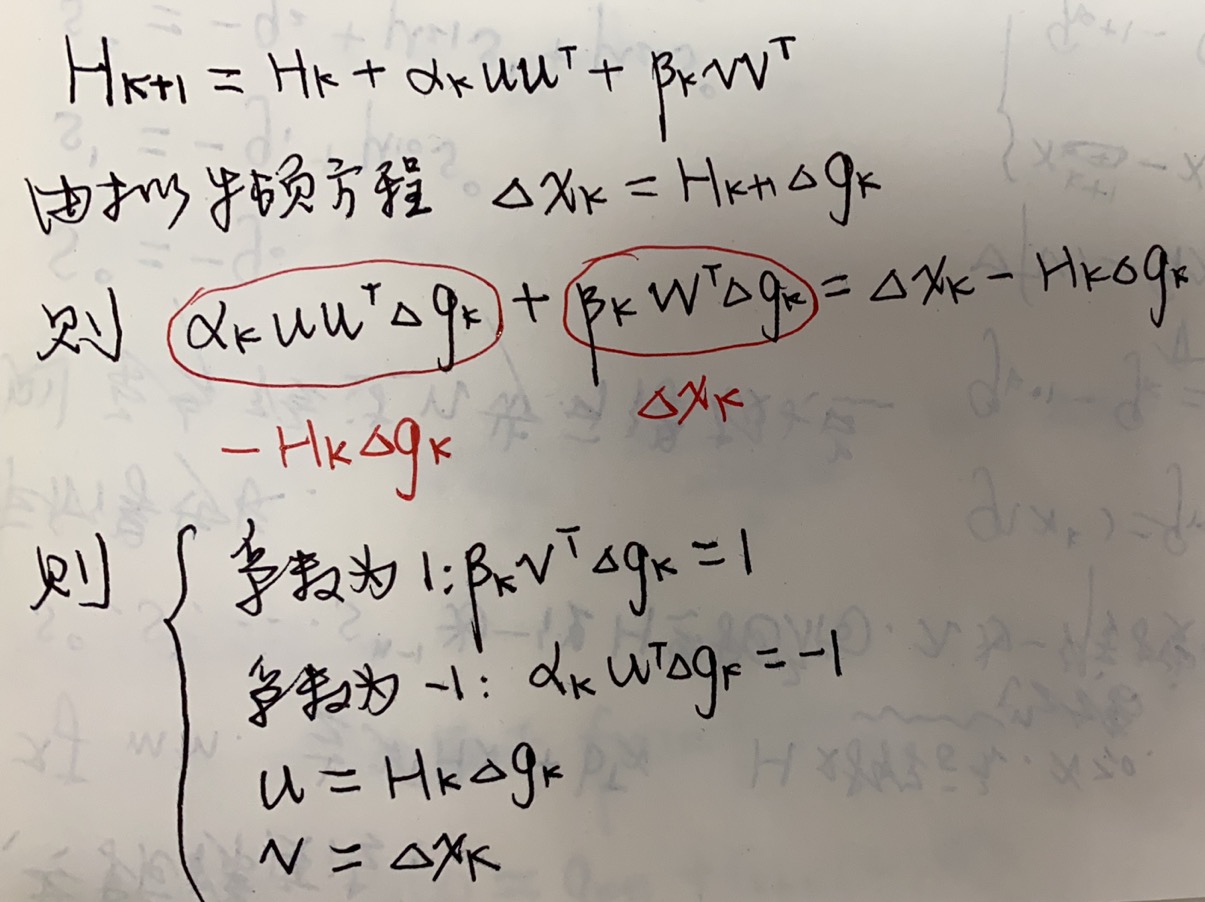 H_{K+1} = H_K + α_K uu^T + β_K vv^T
由拟牛顿方程 Δx_K = H_{K+1} Δg_K
则 α_K uu^T Δg_K + β_K vv^T Δg_K = Δx_K - H_K Δg_K
-H_K Δg_K Δx_K
则 { 参数为 1: β_K v^T Δg_K = 1
参数为 -1: α_K u^T Δg_K = -1
u = H_K Δg_K
v = Δx_K